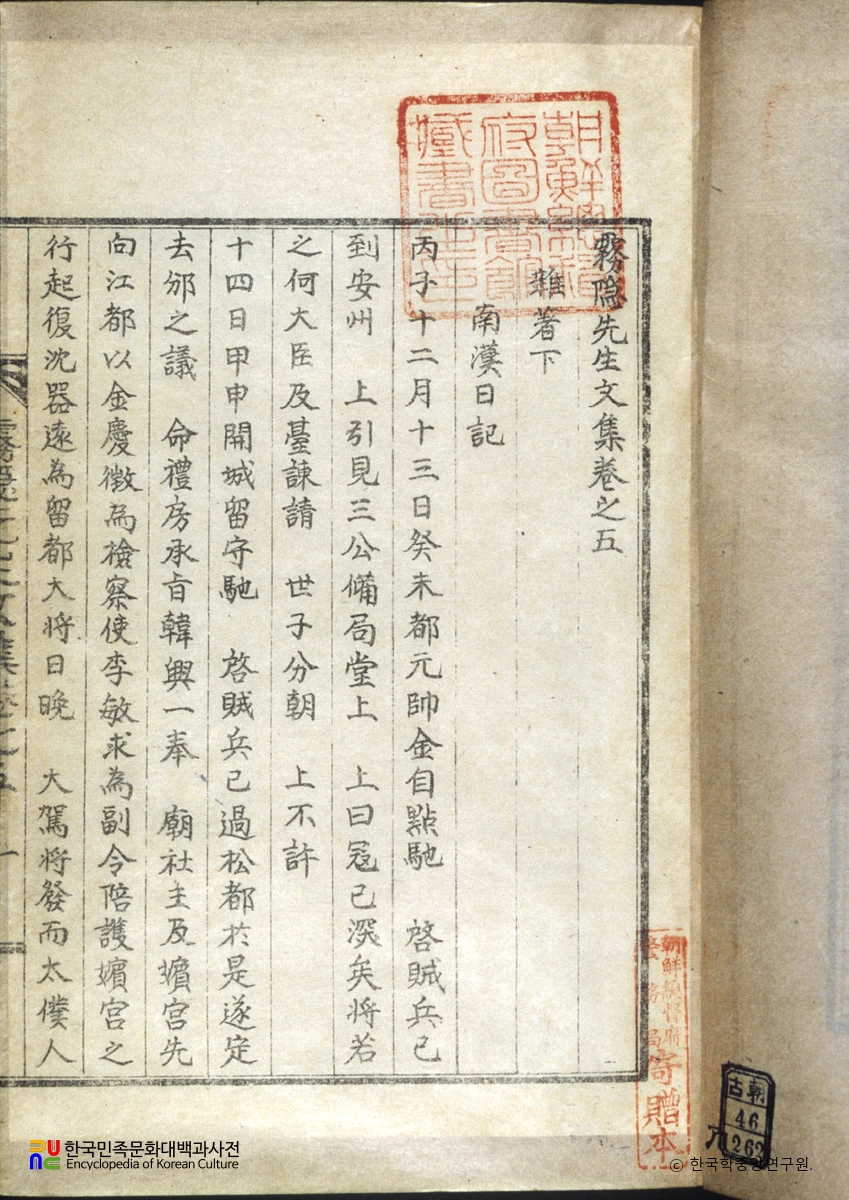 霧隐先生文集卷之五
雜著下
南漢日記
丙子十二月十三日癸未都元帥金自點馳 啓賊兵已
到安州 上引見三公備局堂上 上曰冦已深矣將若
之何大臣及臺諫請 世子分朝 上不許
十四日甲申開城留守馳 啓賊兵已過松都於是遂定
去邠之議 命禮房承旨韓興一奉 廟社主及嬪宮先
向江都以金慶徵爲檢察使李敏求為副令陪護嬪宮之
行起復沈器遠為留都大将日晚 大駕將發而太僕人
朝鮮總督府圖書館藏書之印
朝鮮總督府
警務局
寄贈本
朝
古
46
262
한국민족문화대백과사전
Encyclopedia of Korean Culture
© 한국학중앙연구원.